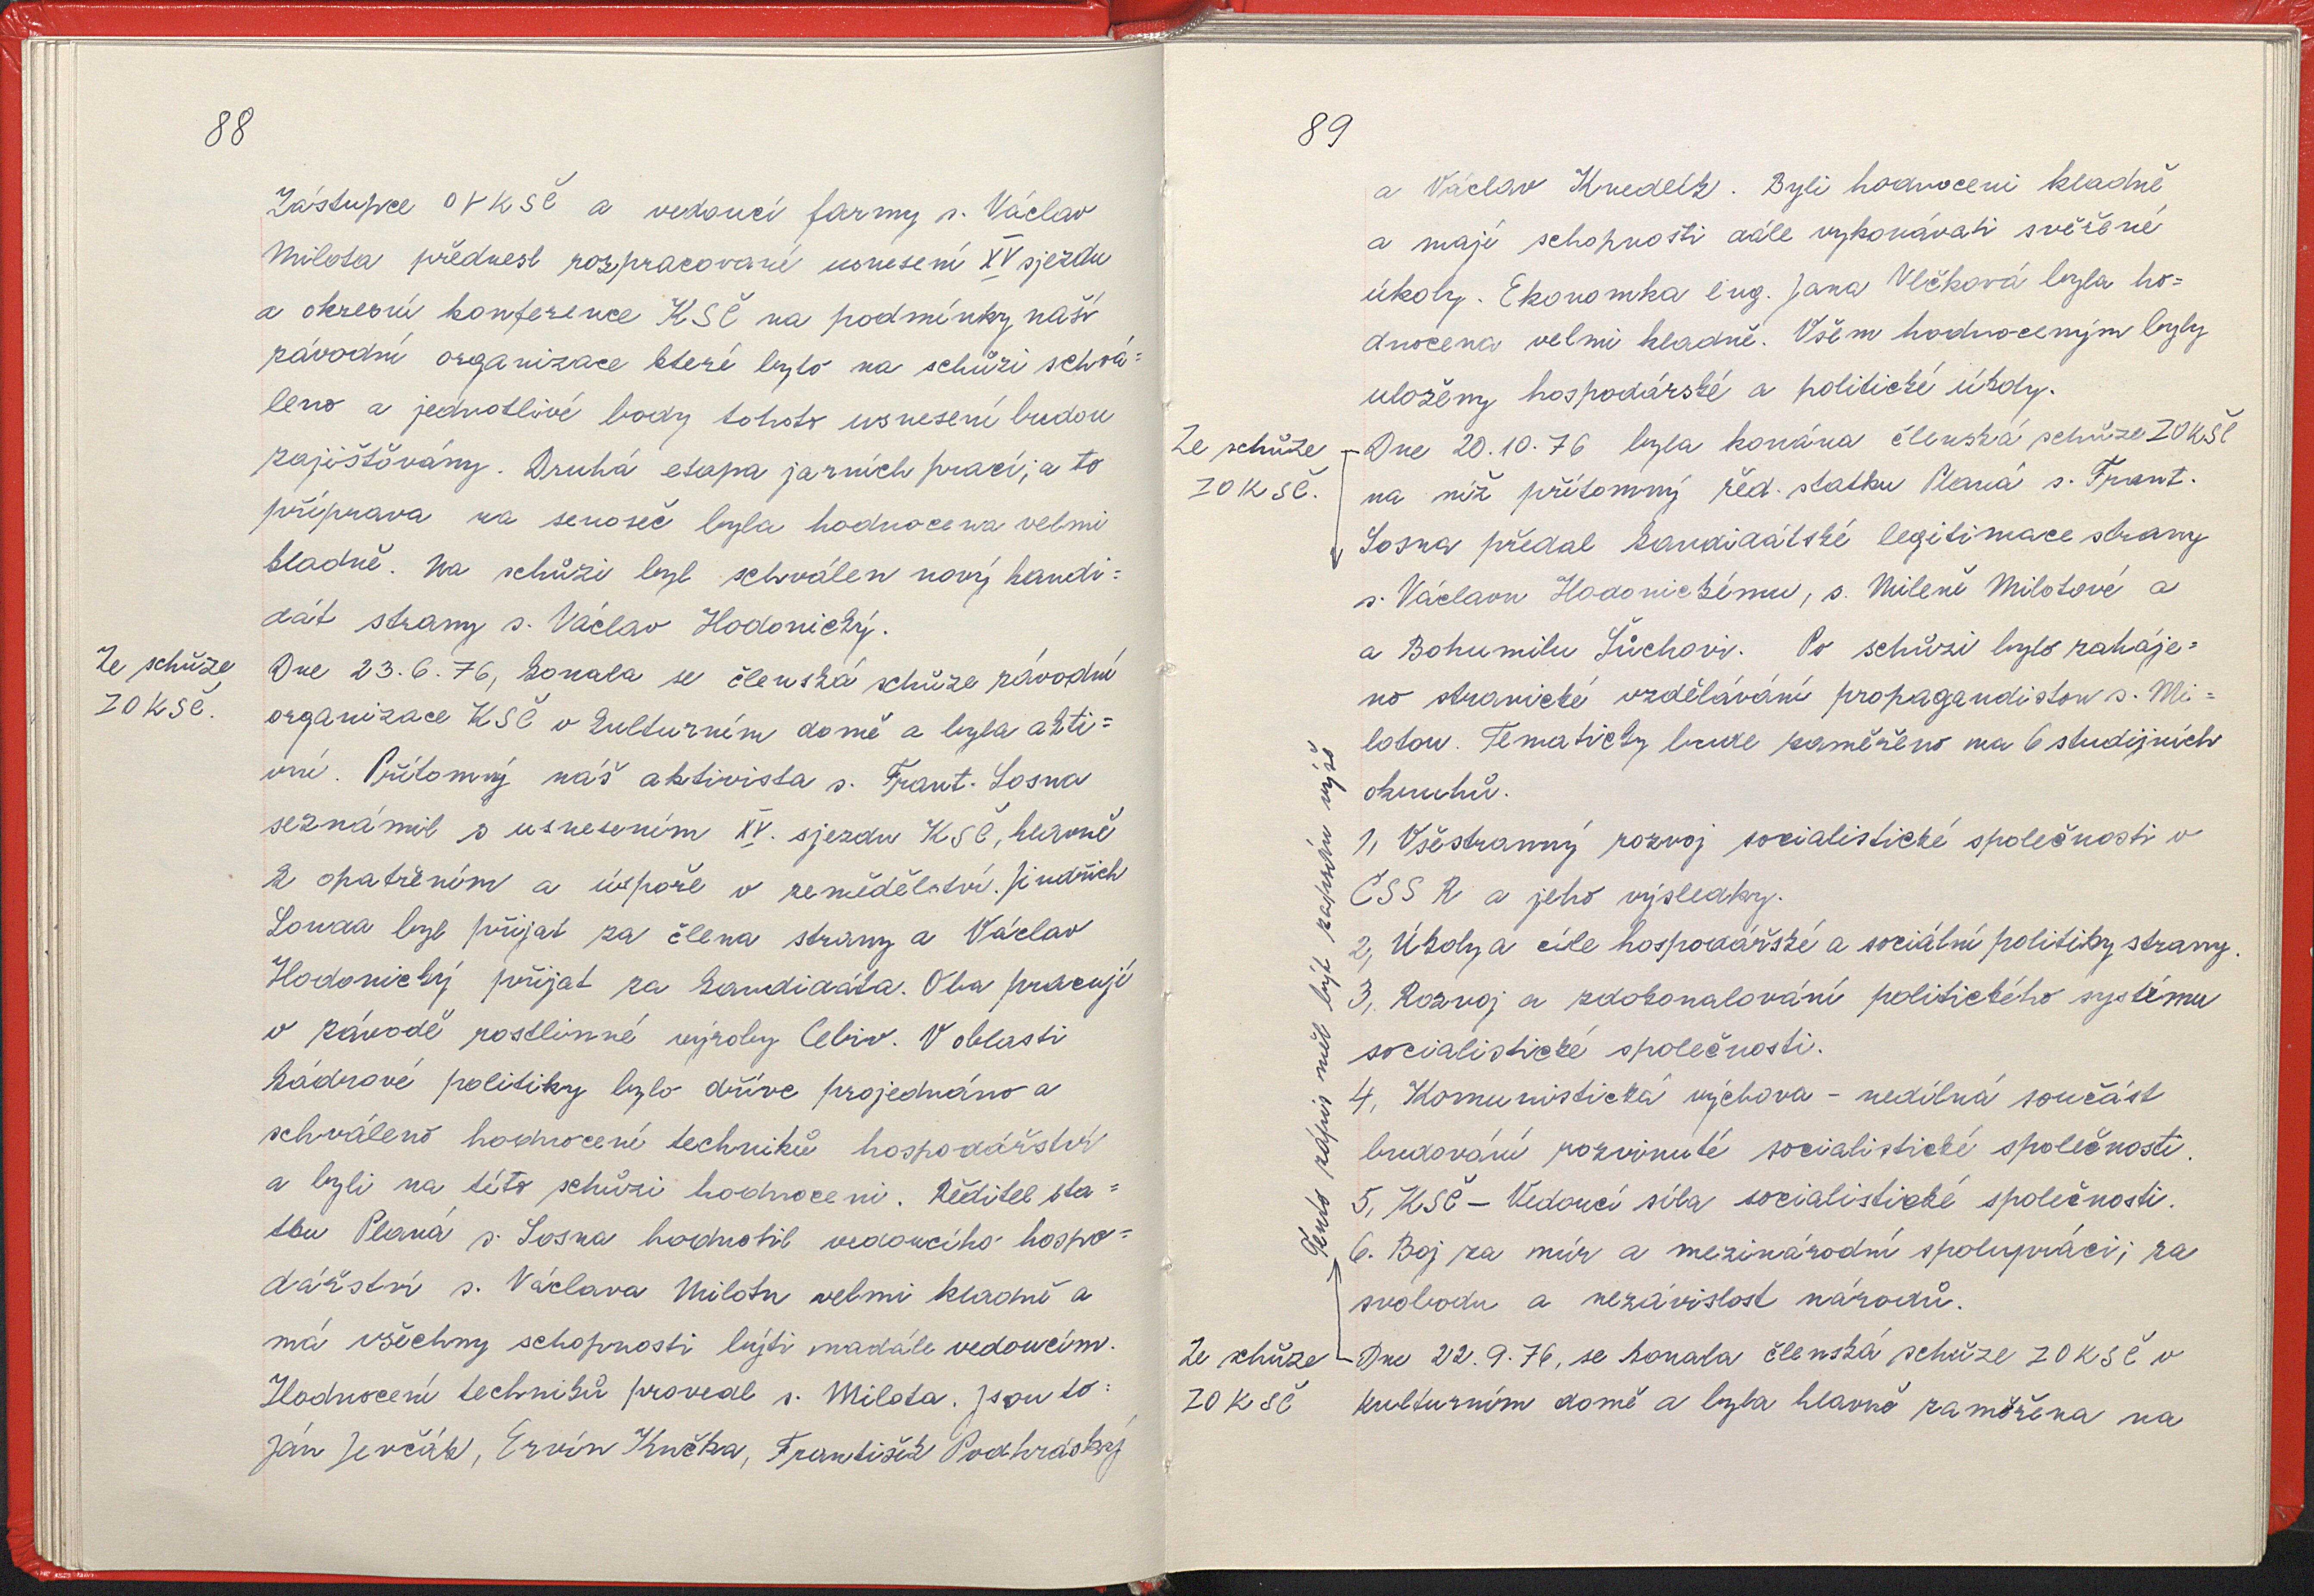 88
Zástupce OVKSČ a vedoucí farmy s. Václav
Milota přednesl rozpracované usnesení XV sjezdu
a okresní konference KSČ na podmínky naší
závodní organizace které bylo na schůzi schvá=
leno a jednotlivé body tohoto usnesení budou
zajišťovány. Druhá etapa jarních prací, a to
příprava na senoseč byla hodnocena velmi
kladně. Na schůzi byl schválen nový kandi=
dát strany s. Václav Hodonický.
Ze schůze
ZO KSČ.
Dne 23.6.76, konala se členská schůze závodní
organizace KSČ v kulturním domě a byla akti=
vní. Přítomný náš aktivista s. Frant. Sosna
seznámil s usnesením XV. sjezdu KSČ, hlavně
k opatřením a úspoře v zemědělství. Jindřich
Souda byl přijat za člena strany a Václav
Hodonický přijat za kandidáta. Oba pracují
v závodě rostlinné výroby Cebiv. V oblasti
kádrové politiky bylo dříve projednáno a
schváleno hodnocení techniků hospodářství
a byli na této schůzi hodnoceni. Ředitel sta=
tku Planá s. Sosna hodnotil vedoucího hospo=
dářství s. Václava Milotu velmi kladně a
má všechny schopnosti býti nadále vedoucím.
Hodnocení techniků provedl s. Milota. Jsou to:
Ján Jevčák, Ervín Kučka, František Podhráský
89
a Václav Knedlík. Byli hodnoceni kladně
a mají schopnosti dále vykonávati svěřené
úkoly. Ekonomka ing. Jana Vlčková byla ho=
dnocena velmi kladně. Všem hodnoceným byly
uloženy hospodářské a politické úkoly.
Ze schůze
ZO KSČ.
Dne 20.10.76 byla konána členská schůze ZOKSČ
na níž přítomný řed. statku Planá s. Frant.
Sosna předal kandidátské legitimace strany
s. Václavu Hodonickému, s. Mileně Milotové a
a Bohumilu Šůchovi. Po schůzi bylo zaháje=
no stranické vzdělávání propagandistou s. Mi=
lotou. Tematicky bude zaměřeno na 6 studijních
okruhů.
1, Všestranný rozvoj socialistické společnosti v
ČSSR a jeho výsledky.
2, Úkoly a cíle hospodářské a sociální politiky strany.
3, Rozvoj a zdokonalování politického systému
socialistické společnosti.
4, Komunistická výchova - nedílná součást
budování rozvinuté socialistické společnosti.
5, KSČ - Vedoucí síla socialistické společnosti.
6. Boj za mír a mezinárodní spolupráci, za
svobodu a nezávislost národů.
Tento zápis měl být zapsán výše
Ze schůze
ZO KSČ
Dne 22.9.76, se konala členská schůze ZO KSČ v
kulturním domě a byla hlavně zaměřena na